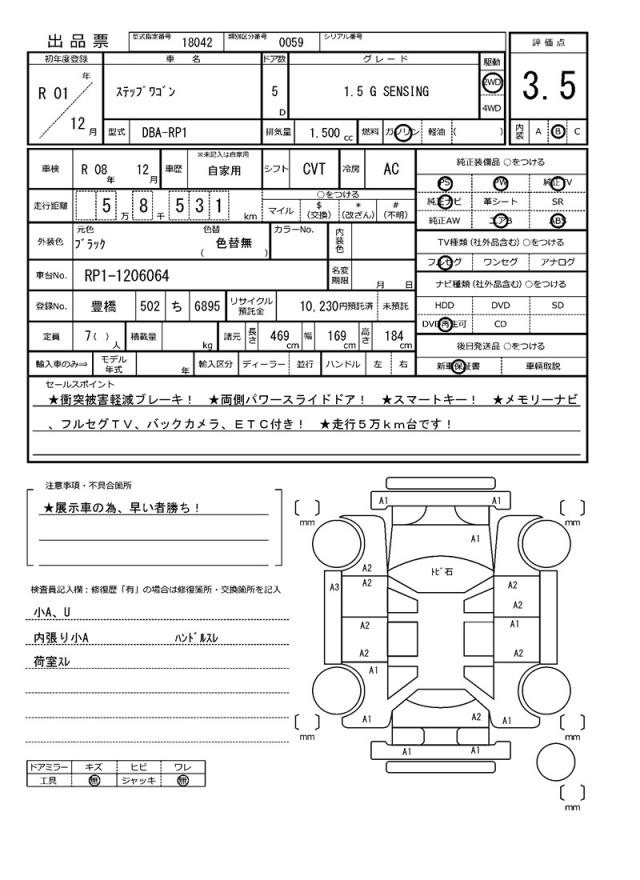 出品票 型式指定番号 18042 類別区分番号 0059 シリアル番号
評価点 3.5
初年度登録 車名 ドア数 グレード 駆動
R 01 年 12 月 ｽﾃｯﾌﾟﾜｺﾞﾝ 5 D 1.5 G SENSING 2WD 4WD
型式 DBA-RP1 排気量 1.500 cc 燃料 ガソリン 軽油 ( ) 内装 A B C
車検 R 08 年 12 月 車歴 ※未記入は自家用 自家用 シフト CVT 冷房 AC
走行距離 5 万 8 千 5 3 1 km ○をつける マイル $ (交換) * (改ざん) # (不明)
外装色 元色 ﾌﾞﾗｯｸ 色替 ( 色替無 ) カラーNo. 内装色
車台No. RP1-1206064 名変期限 月 日
登録No. 豊橋 502 ち 6895 リサイクル預託金 10,230円預託済 未預託
定員 7( ) 人 積載量 kg 諸元 長さ 469 cm 幅 169 cm 高さ 184 cm
輸入車のみ⇒ モデル年式 年 輸入区分 ディーラー 並行 ハンドル 左 右
純正装備品 ○をつける
PS PW 純正TV
純正ナビ 革シート SR
純正AW エアB ABS
TV種類 (社外品含む) ○をつける
フルセグ ワンセグ アナログ
ナビ種類 (社外品含む) ○をつける
HDD DVD SD
DVD再生可 CD
後日発送品 ○をつける
新車保証書 車輌取説
セールスポイント
★衝突被害軽減ブレーキ！ ★両側パワースライドドア！ ★スマートキー！ ★メモリーナビ
、フルセグTV、バックカメラ、ETC付き！ ★走行5万km台です！
注意事項・不具合箇所
★展示車の為、早い者勝ち！
検査員記入欄：修復歴「有」の場合は修復箇所・交換箇所を記入
小A、U
内張り小A ﾊﾝﾄﾞﾙｽﾚ
荷室ｽﾚ
ドアミラー キズ ヒビ ワレ
工具 無 ジャッキ 無
A1 A1
mm mm
A1
ﾄﾋﾞ石
A2
A3 A2 A2
A2
A2 A1
A2 A2
A1
A1 A2 A1
mm mm
A1 A1
mm